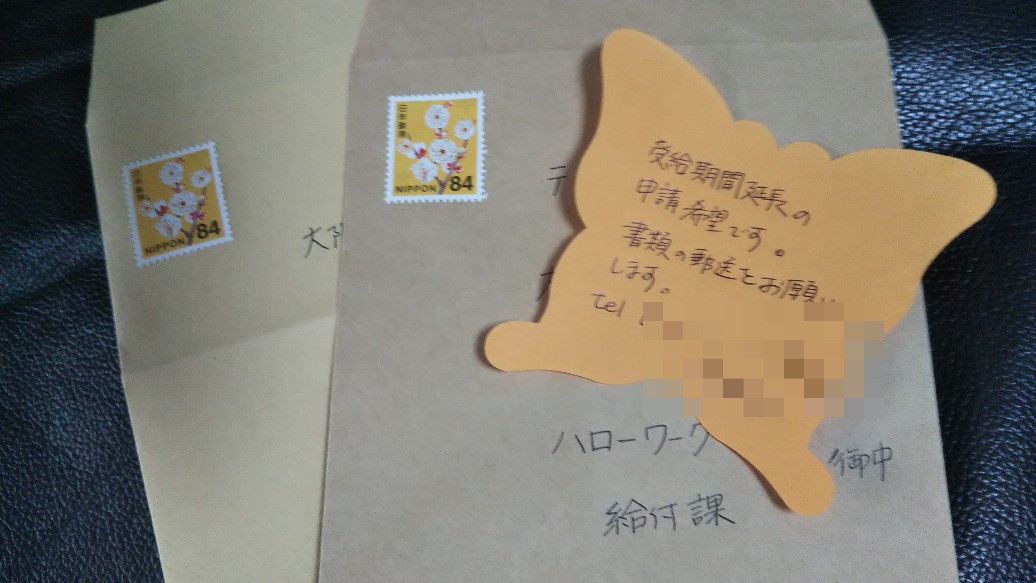 日本郵便
NIPPON 84
大阪
日本郵便
NIPPON 84
〒
受給期間延長の
申請希望です。
書類の郵送をお願い
します。
tel
ハローワーク
御中
給付課